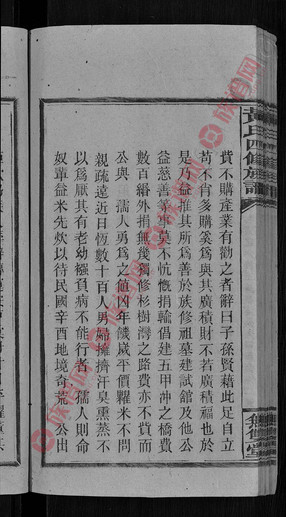 黃氏四修族譜
費不購產業有勸之者辭曰子孫賢藉此足自立
苟不肖多購奚為與其廣積財不若廣積福也於
是乃益推其所為善於族修祖墓建試館及他公
益慈善等事莫不忼慨捐輸倡建五甲沖之橋費
數百緡外捐無幾獨修杉樹灣之路費亦不貲而
公與 孺人勇為之值凶年饑歲平價糶米不問
親疏遠近日恆數十百人男婦擁擠汗臭熏蒸不
以為厭其有老幼襁負病不能行者 孺人則命
奴輩益米先炊以待民國辛酉地境奇荒 公出
族譜网